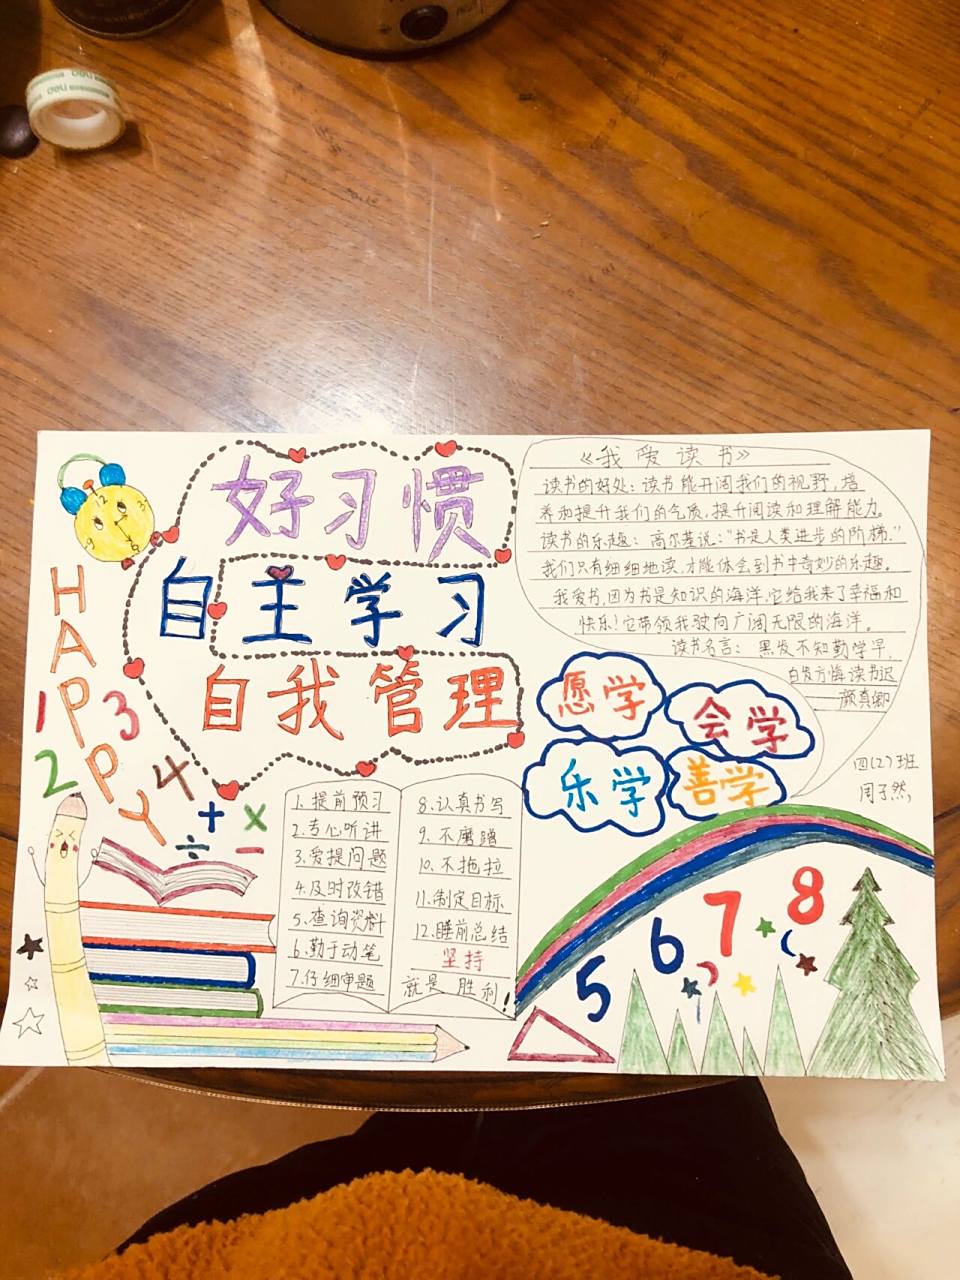 deli
deli
好习惯
自主学习
自我管理
HAPPY
1
2
3
4
+
×
÷
−
12
3
6
9
《我爱读书》
读书的好处：读书能开阔我们的视野，培
养和提升我们的气质，提升阅读和理解能力。
读书的乐趣：高尔基说：“书是人类进步的阶梯.”
我们只有细细地读,才能体会到书中奇妙的乐趣。
我爱书,因为书是知识的海洋,它给我来了幸福和
快乐!它带领我驶向广阔无限的海洋。
读书名言：黑发不知勤学早,
白发方悔读书迟
——颜真卿
愿学
会学
乐学
善学
四(2)班
周子然
1.提前预习
2.专心听讲
3.爱提问题
4.及时改错
5.查询资料
6.勤于动笔
7.仔细审题
8.认真书写
9.不磨蹭
10.不拖拉
11.制定目标
12.睡前总结
坚持
就是胜利!
5
6
7
8